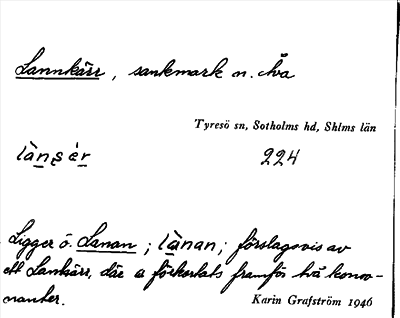 Lannkärr, sankmark n. Åva
Tyresö sn, Sotholms hd, Shlms län
224
Ligger ö. Lanan; lànan; förslagsvis av
ett Lankärr, där a förkortats framför två konso-
nanter.
Karin Grafström 1946